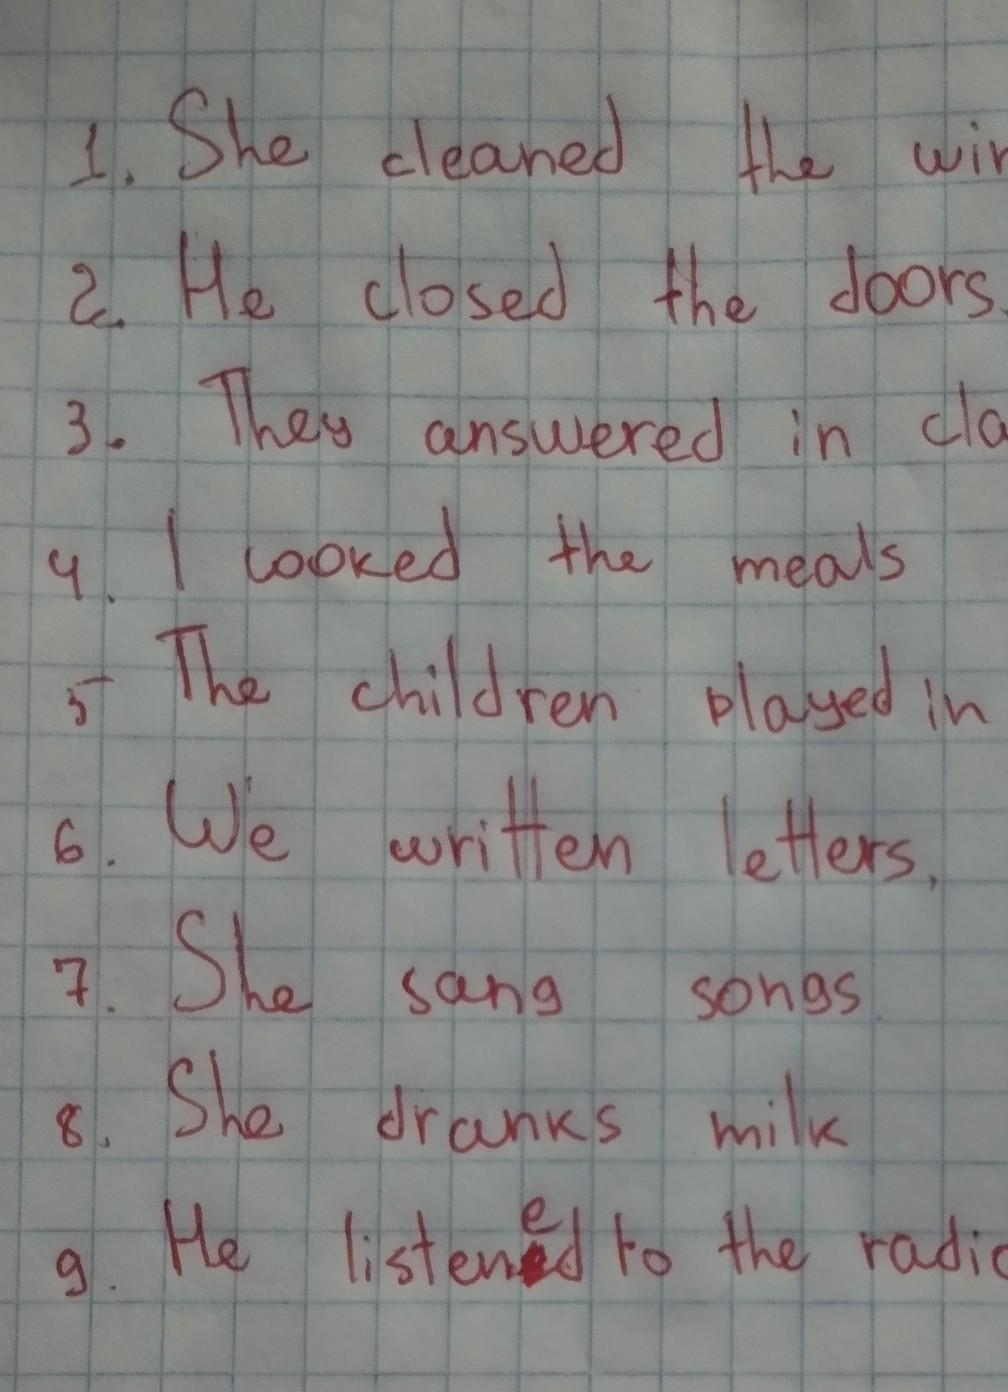 1. She cleaned the win
2. He closed the doors.
3. They answered in cla
4. I cooked the meals
5 The children played in
6. We written letters,
7. She sang songs
8. She dranks milk
9. He listened to the radio